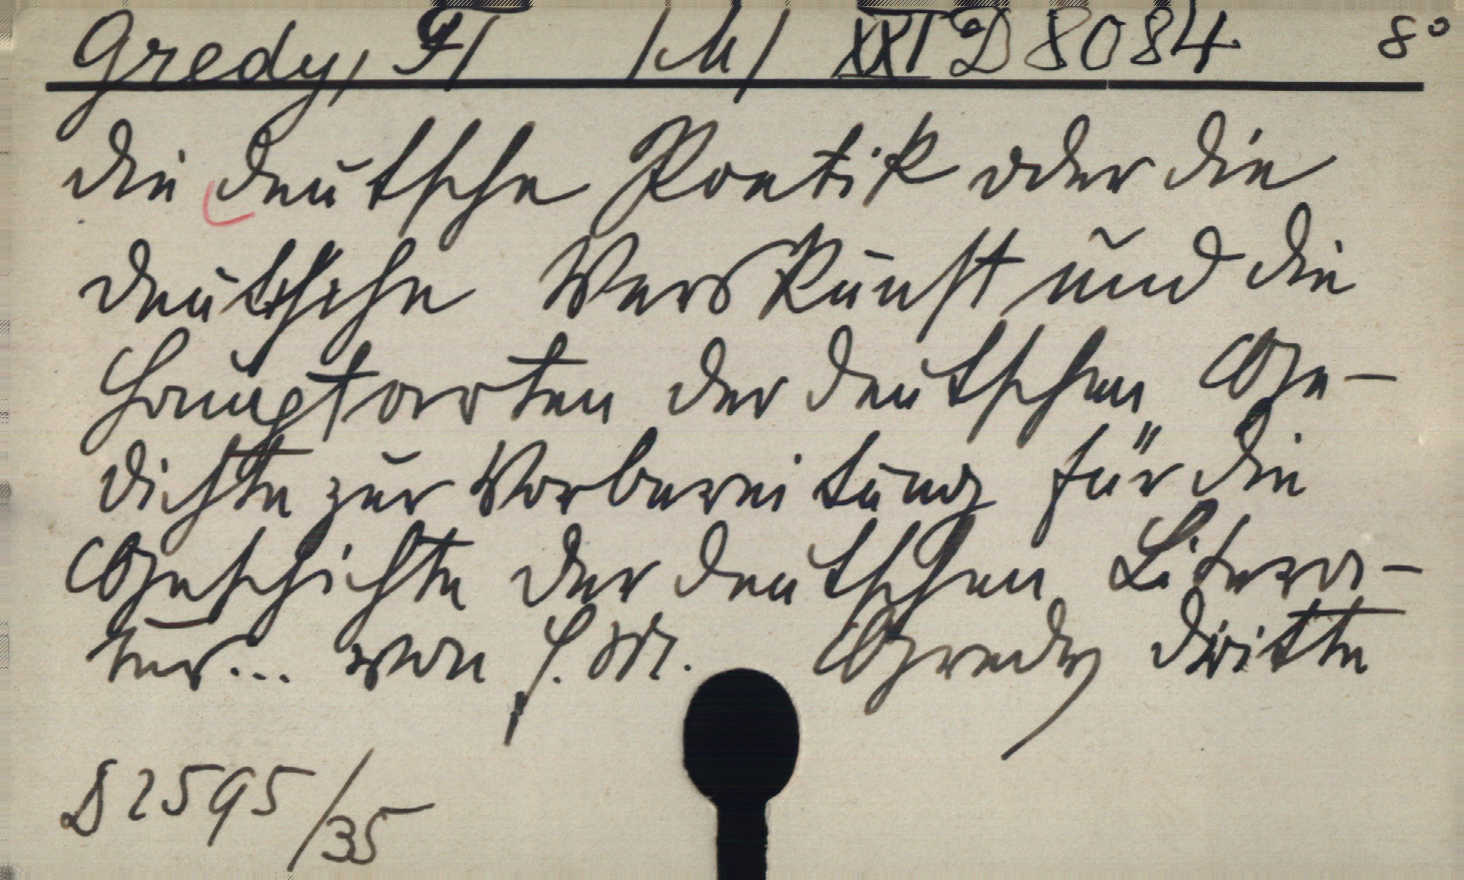 Gredy, F. /M/ XXI D 8084 8°
Die deutsche Poetik oder die
deutsche Verskunst und die
Hauptarten der deutschen Ge-
dichte zur Vorbereitung für die
Geschichte der deutschen Litera-
tur... von F. M. Gredy dritte
D 2595/35